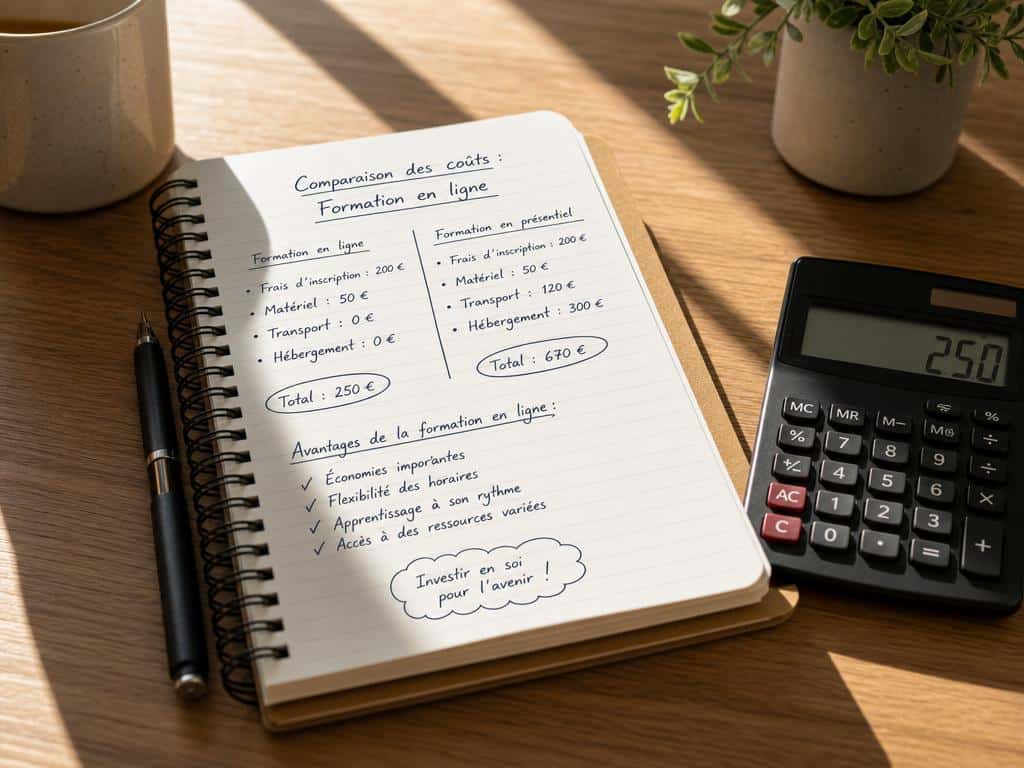 Comparaison des coûts :
Formation en ligne
Formation en ligne
• Frais d'inscription : 200 €
• Matériel : 50 €
• Transport : 0 €
• Hébergement : 0 €
Total : 250 €
Formation en présentiel
• Frais d'inscription : 200 €
• Matériel : 50 €
• Transport : 120 €
• Hébergement : 300 €
Total : 670 €
Avantages de la formation en ligne :
✓ Économies importantes
✓ Flexibilité des horaires
✓ Apprentissage à son rythme
✓ Accès à des ressources variées
Investir en soi
pour l'avenir !
250
MC MR M− %
% 7 8 9 ÷
+/− 4 5 6 ÷
AC 1 2 3 ×
C 0 • = +